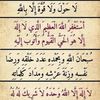 لَا حَوْلَ وَلَا قُوَّةَ إِلَّا بِاللَّهِ
أَسْتَغْفِرُ اللَّهَ الْعَظِيمَ الَّذِي لَا إِلَهَ
إِلَّا هُوَ الْحَيُّ الْقَيُّومُ وَأَتُوبُ إِلَيْهِ
سُبْحَانَ اللَّهِ وَبِحَمْدِهِ عَدَدَ خَلْقِهِ وَرِضَا
نَفْسِهِ وَزِنَةَ عَرْشِهِ وَمِدَادَ كَلِمَاتِهِ
لَا إِلَهَ إِلَّا اللَّهُ وَحْدَهُ لَا شَرِيكَ لَهُ لَهُ